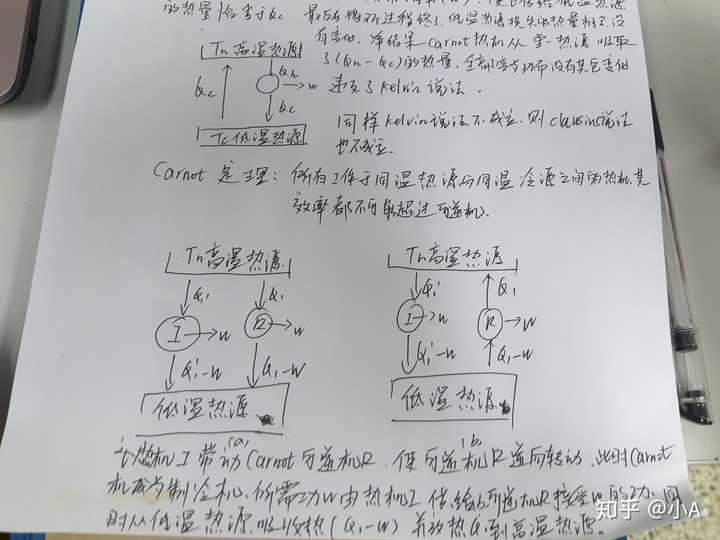 的热量恰等于Qc 最后右物环过程终了,低温热源损失的热量相互没
有变化,净结果Carnot热机从单一热源吸取
了(Qh-Qc)的热量,全部变为功而没有其它变化
违反了Kelvin说法。
Th高温热源
Qc Qh W
Qc
Tc低温热源
同样Kelvin说法不成立,则clausius说法
也不成立
Carnot定理:所有工作于同温热源与同温冷源之间的热机,其
效率都不可能超过可逆机。
Th高温热源 Th高温热源
Q1' Q1 Q1' Q1
I W R W I W R W
Q1'-W Q1-W Q1'-W Q1-W
低温热源 低温热源
(a) (b)
热机I带动Carnot可逆机R,使可逆机R逆向转动,此时Carnot
机成为制冷机,所需功W由热机I供给,可逆机R接受W的功,同
时从低温热源吸收热(Q1-W)并放热Q1到高温热源。
知乎 @小A